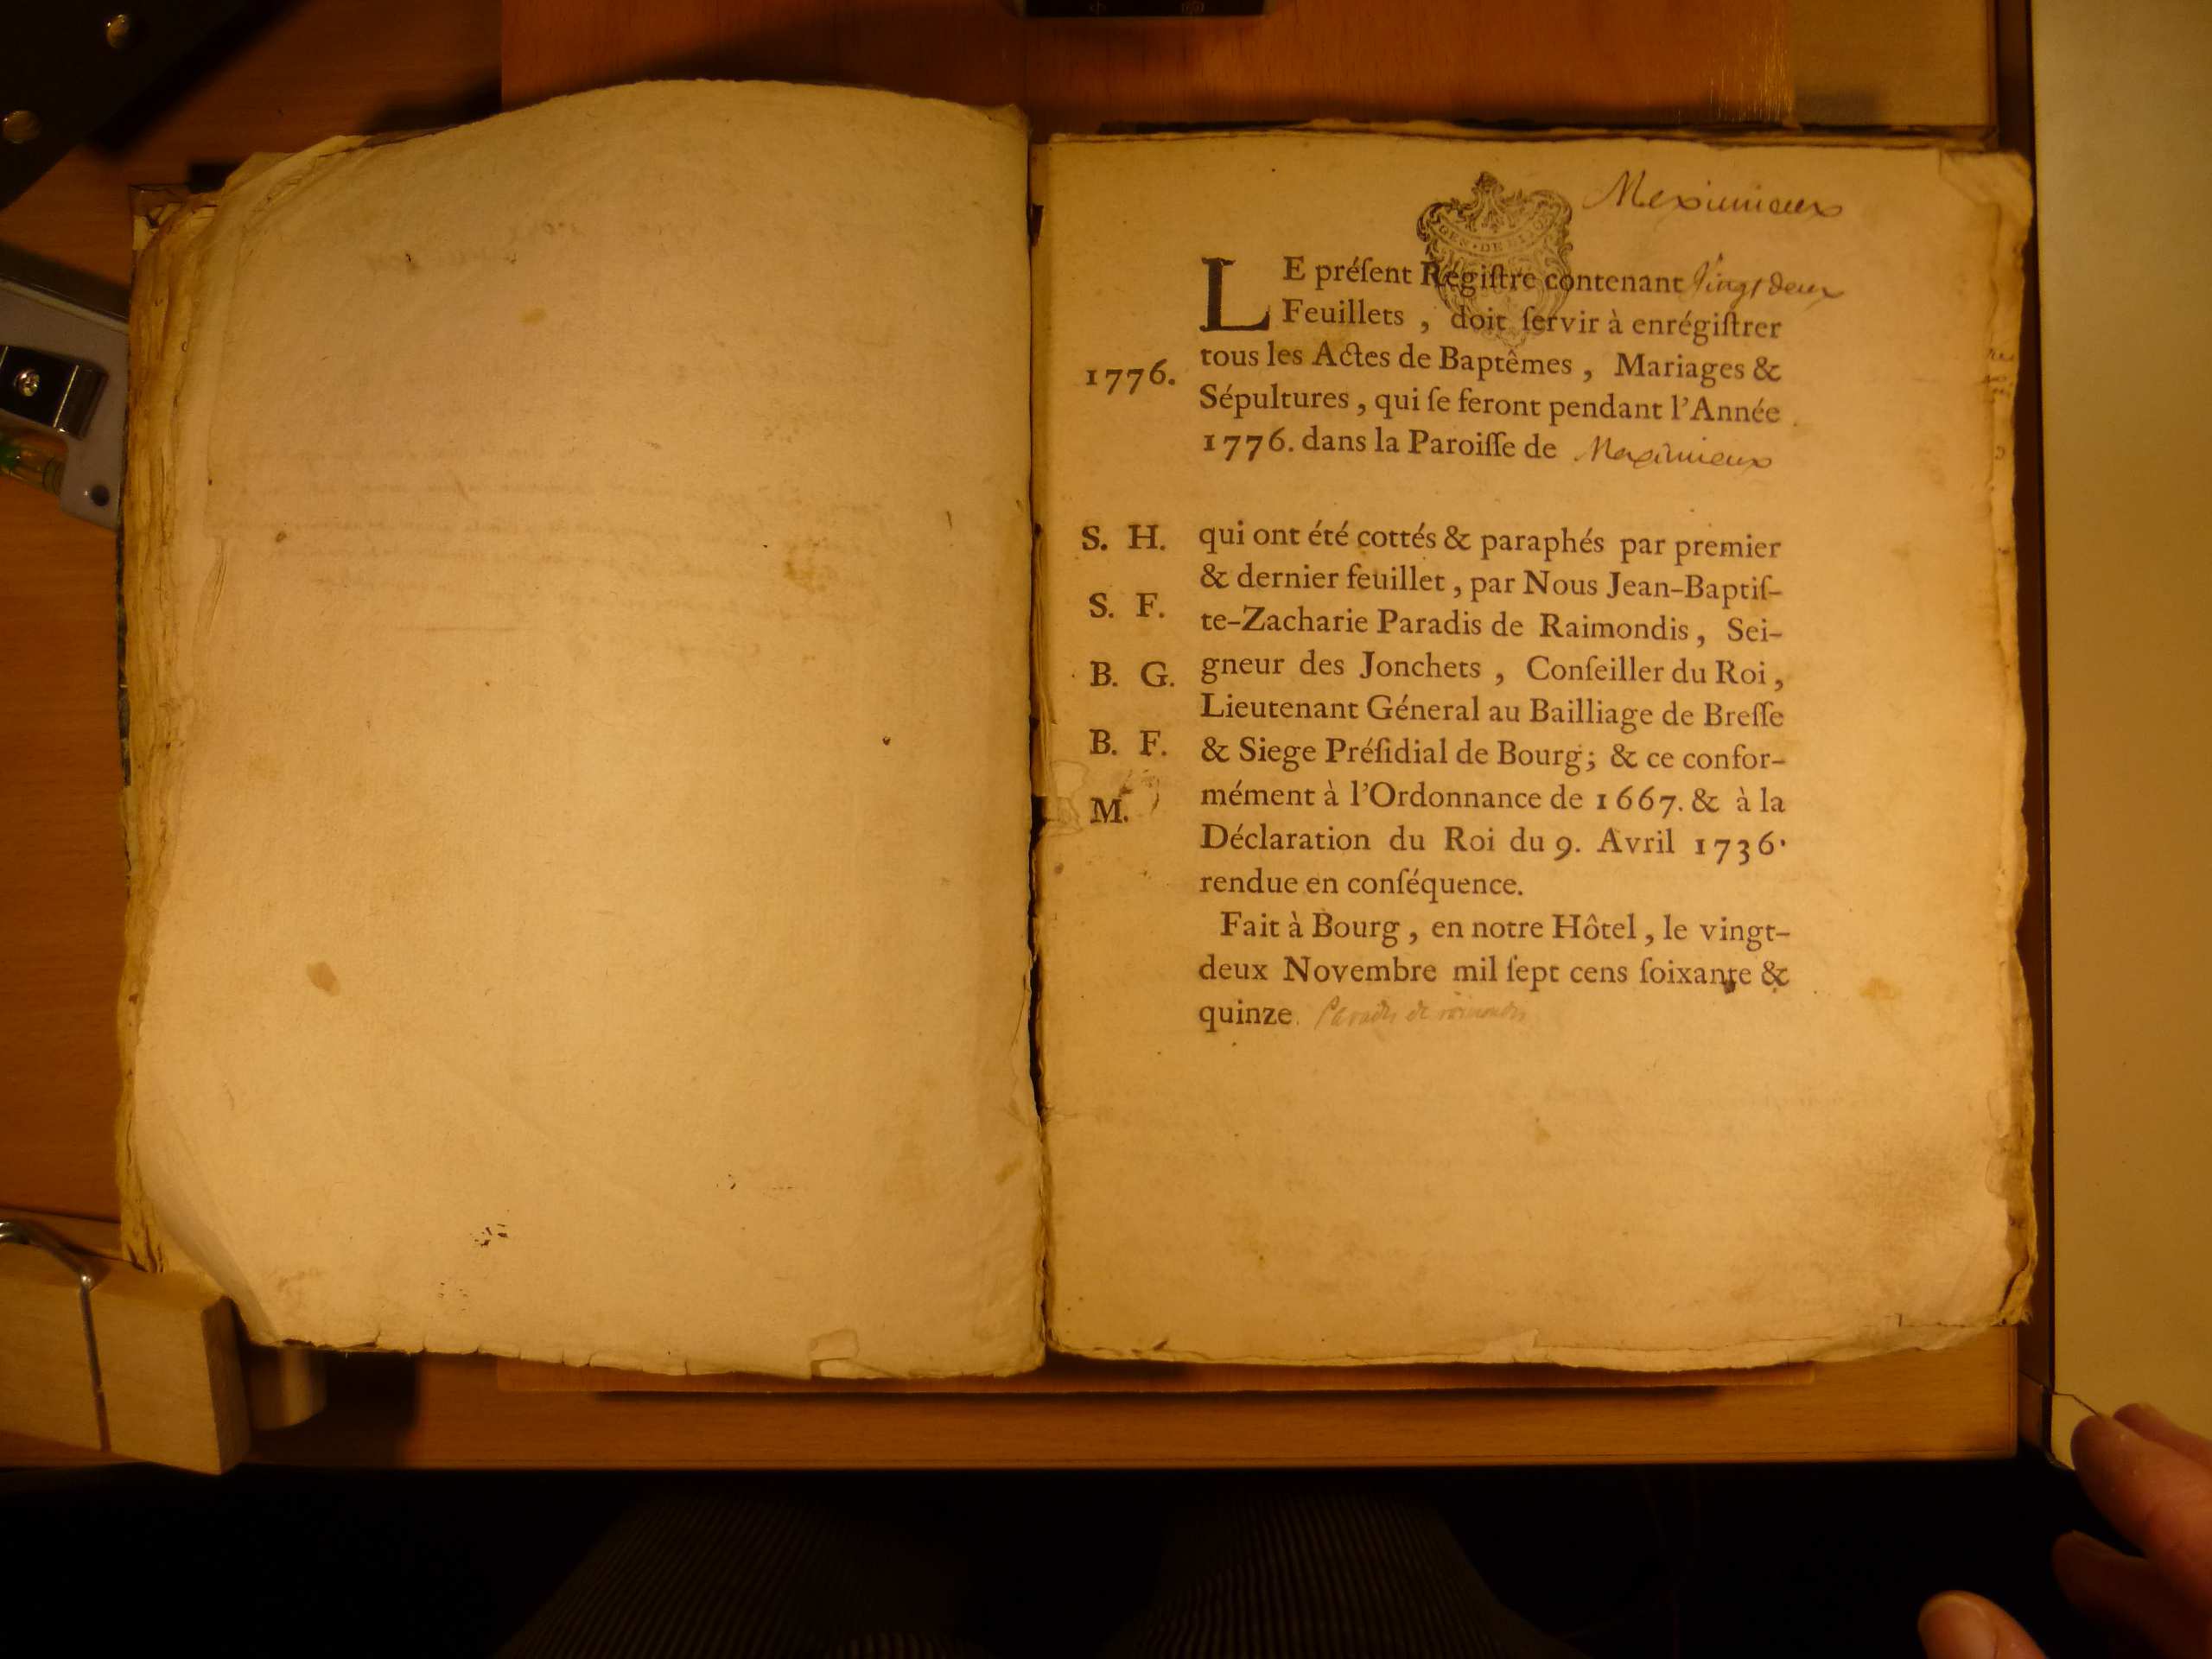 Meximieux
LE préſent Régiſtre contenant vingt deux
Feuillets , doit ſervir à enrégiſtrer
1776. tous les Actes de Baptêmes , Mariages &
Sépultures , qui ſe feront pendant l'Année
1776. dans la Paroiſſe de Meximieux
S. H. qui ont été cottés & paraphés par premier
& dernier feuillet , par Nous Jean-Baptiſ-
S. F. te-Zacharie Paradis de Raimondis , Sei-
B. G. gneur des Jonchets , Conſeiller du Roi ,
Lieutenant Géneral au Bailliage de Breſſe
B. F. & Siege Préſidial de Bourg ; & ce confor-
M. mément à l'Ordonnance de 1667. & à la
Déclaration du Roi du 9. Avril 1736.
rendue en conſéquence.
Fait à Bourg , en notre Hôtel , le vingt-
deux Novembre mil ſept cens ſoixante &
quinze. Paradis de raimondis